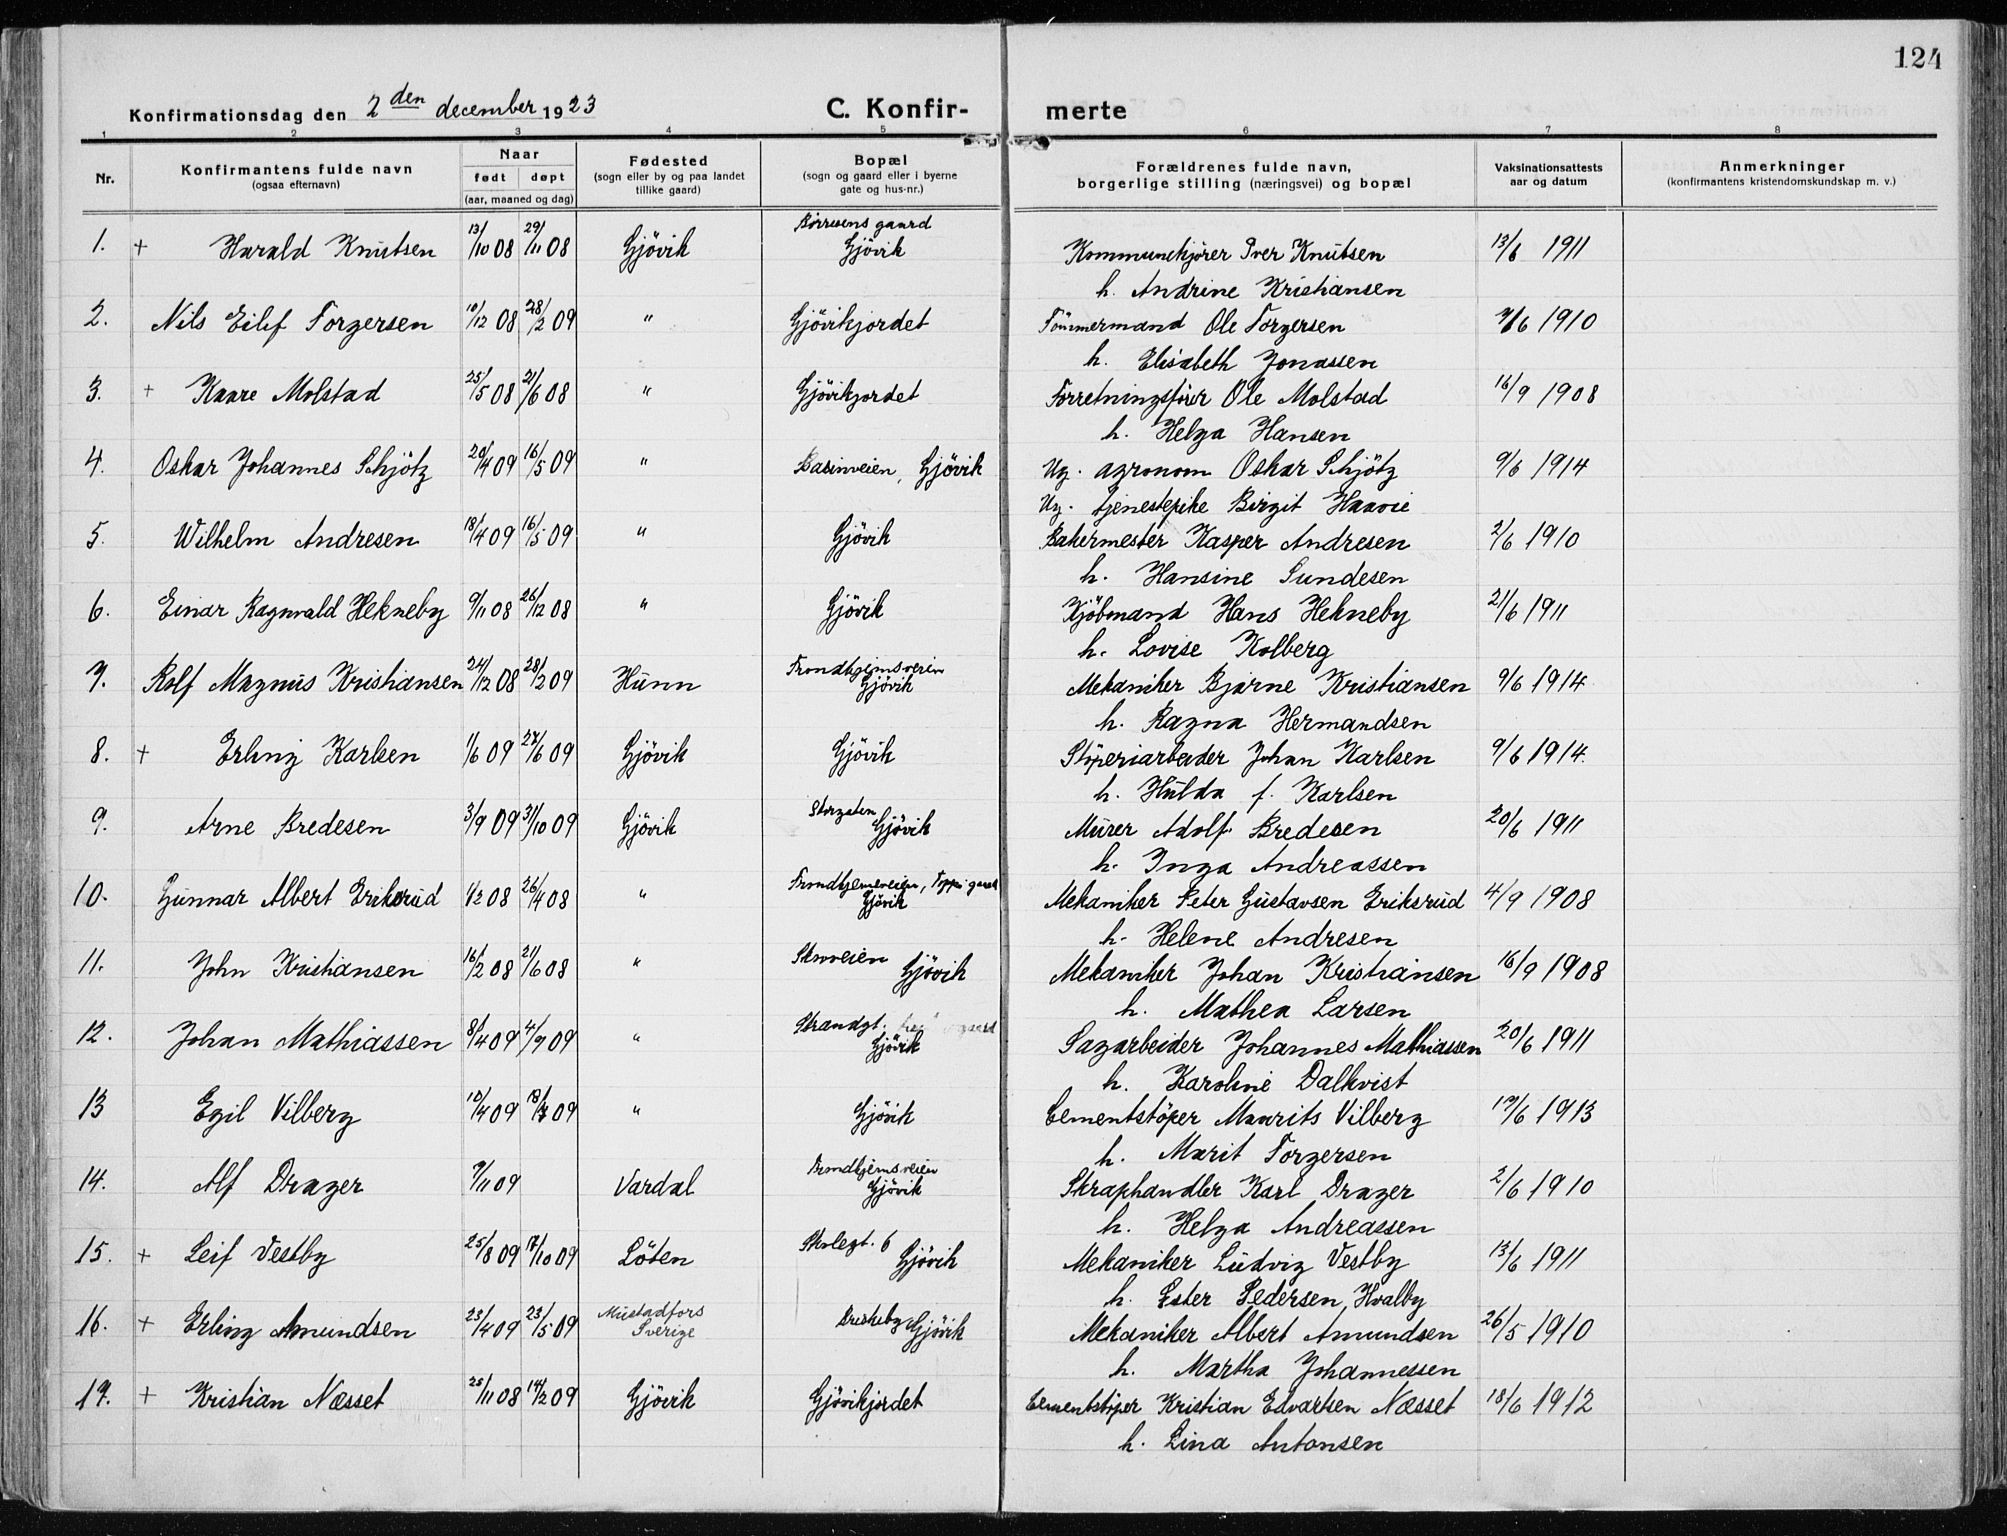 124
Konfirmationsdag den 2den december 1923
C. Konfirmerte
1 2 3 4 5 6 7 8
Nr.
Konfirmantens fulde navn
(ogsaa efternavn)
Naar
født døpt
(aar, maaned og dag)
Fødested
(sogn eller by og paa landet
tillike gaard)
Bopæl
(sogn og gaard eller i byerne
gate og hus-nr.)
Forældrenes fulde navn,
borgerlige stilling (næringsvei) og bopæl
Vaksinationsattests
aar og datum
Anmerkninger
(konfirmantens kristendomskundskap m. v.)
1. + Harald Knutsen 13/10 08 29/11 08 Gjövik Börresens gaard Gjövik Kommunekjörer Iver Knutsen 13/6 1911
h. Andrine Kristiansen
2. Nils Eilif Torgersen 10/12 08 28/2 09 " Gjövikjordet Tömmermand Ole Torgersen 1910
h. Elisabeth Jonassen
3. + Kaare Molstad 25/5 08 21/6 08 " Gjövikjordet Forretningsfører Ole Molstad 16/9 1908
h. Helga Hansen
4. Oskar Johannes Schjötz 20/4 09 16/5 09 " Basinveien, Gjövik Ug. agronom Oskar Schjötz 9/6 1914
Ug. tjenestepike Birgit Haavie
5. Wilhelm Andresen 18/4 09 16/5 09 " Gjövik Bakermester Kasper Andresen 2/6 1910
h. Hansine Sundesen
6. Einar Ragnvald Hekneby 9/11 08 26/12 08 " Gjövik Kjöbmand Hans Hekneby 21/6 1911
h. Lovise Kolberg
7. Rolf Magnus Kristiansen 24/12 08 28/2 09 Hunn Trondhjemsveien Gjövik Mekaniker Bjarne Kristiansen 9/6 1914
h. Ragna Hermandsen
8. + Erling Karlsen 1/6 09 27/6 09 Gjövik Gjövik Stöperiarbeider Johan Karlsen 9/6 1914.
h. Hulda f. Karlsen
9. Arne Bredesen 3/9 09 31/10 09 Gjövik Storgaten Gjövik Murer Adolf Bredesen 20/6 1911
h. Inga Andreassen
10. Gunnar Albert Eriksrud 1/2 08 26/4 08 " Trondhjemsveien, Gjövik Mekaniker Peter Gustavsen Eriksrud 4/9 1908
h. Helene Andresen
11. John Kristiansen 16/2 08 21/6 08 " Gjövik Mekaniker Johan Kristiansen 16/9 1908
h. Mathea Larsen
12. Johan Mathiassen 8/4 09 4/9 09 " Strandgt. Gjövik Sagarbeider Johannes Mathiassen 20/6 1911
h. Karoline Dalkvist
13 Egil Vilberg 10/4 09 18/7 09 " Gjövik Cementstöper Maurits Vilberg 19/6 1913
h. Marit Torgersen
14. Alf Drager 7/11 09 Vardal Trondhjemsveien Gjövik Skraphandler Karl Drager 2/6 1910
h. Helga Andreassen
15. + Leif Vestby 25/8 09 17/10 09 Löten Skolegt. 6 Gjövik Mekaniker Ludvig Vestby 13/6 1911
h. Ester Pedersen, Hvalby
16. + Erling Amundsen 23/4 09 23/5 09 Mustadfors Sverige Breskeby Gjövik Mekaniker Albert Amundsen 26/5 1910
h. Martha Johannessen
17. + Kristian Næsset 25/11 08 14/2 09 Gjövik Gjövikjordet Cementstöper Kristian Edvartsen Næsset 18/6 1912
h. Lina Antonsen